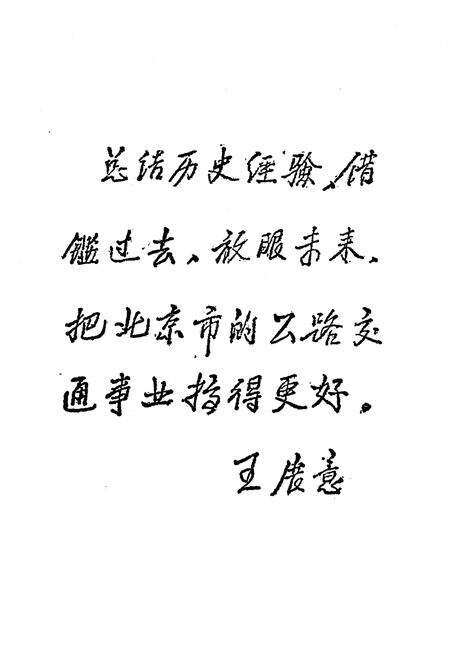 总结历史经验、借
鑑过去、放眼未来、
把北京市的公路交
通事业搞得更好。
王展意